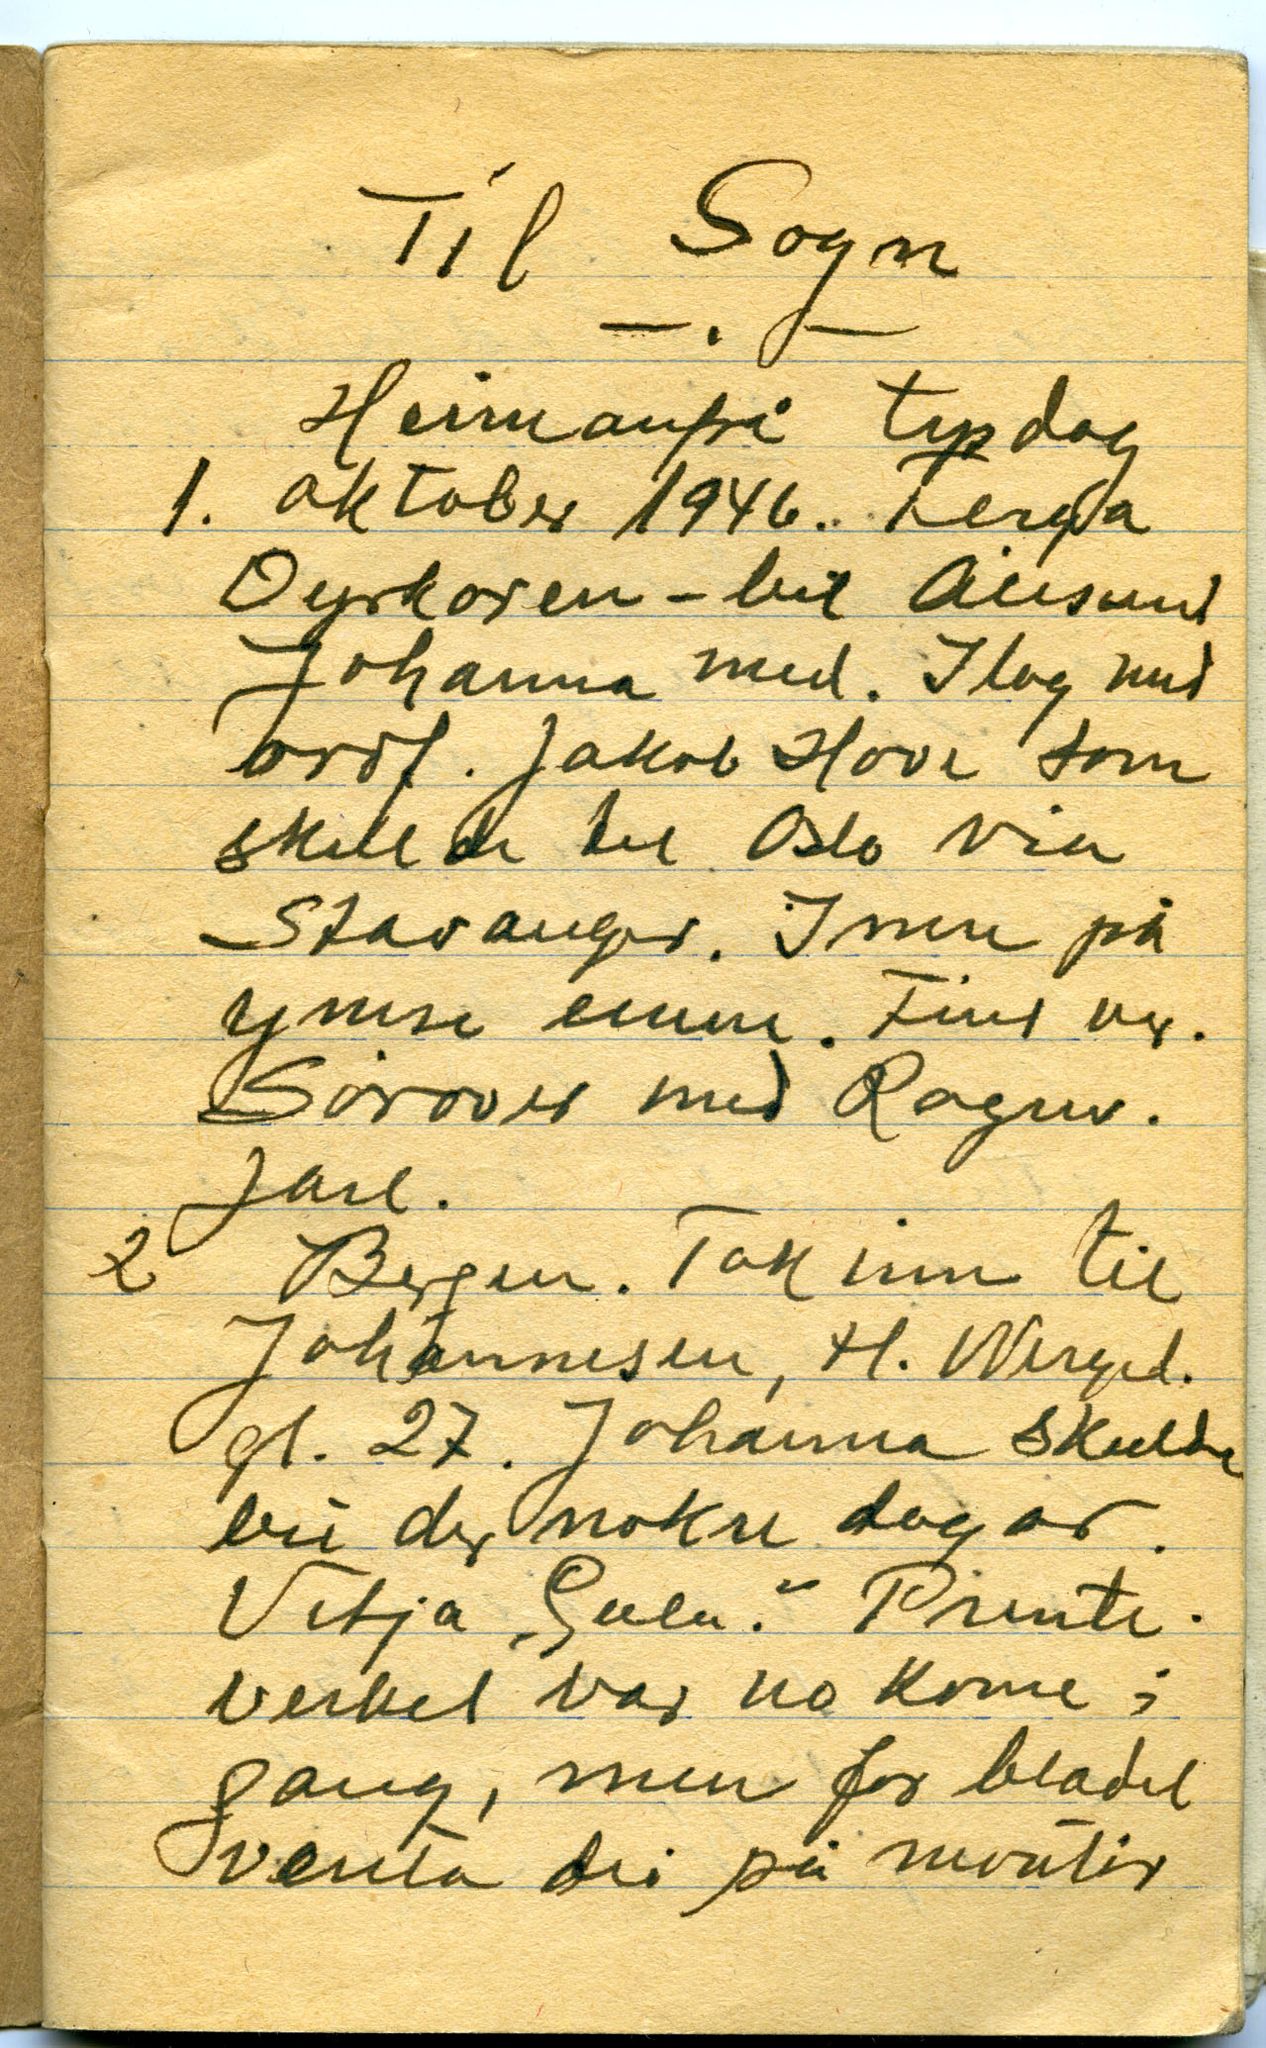 Til Sogn
— . —
Heimanfrå tysdag
1. oktober 1946. Ferja
Dyrkoren - bil Ålesund
Johanna med. I lag med
ordf. Jakob Hove som
skulde til Oslo via
Stavanger. Inne på
ymse emne. Fint ver.
Sørover med Ragnv.
Jarl.
2 Bergen. Tok inn til
Johannesen, H. Wergel.
gt. 27. Johanna skulde
bu der nokre dagar.
Vitja „Gula." Prente-
verket var no kome i
gang, men for bladet
venta dei på montør